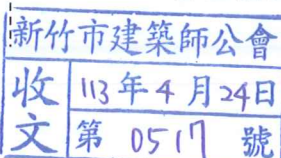 新竹市建築師公會
收文
113年4月24日
第 0517 號